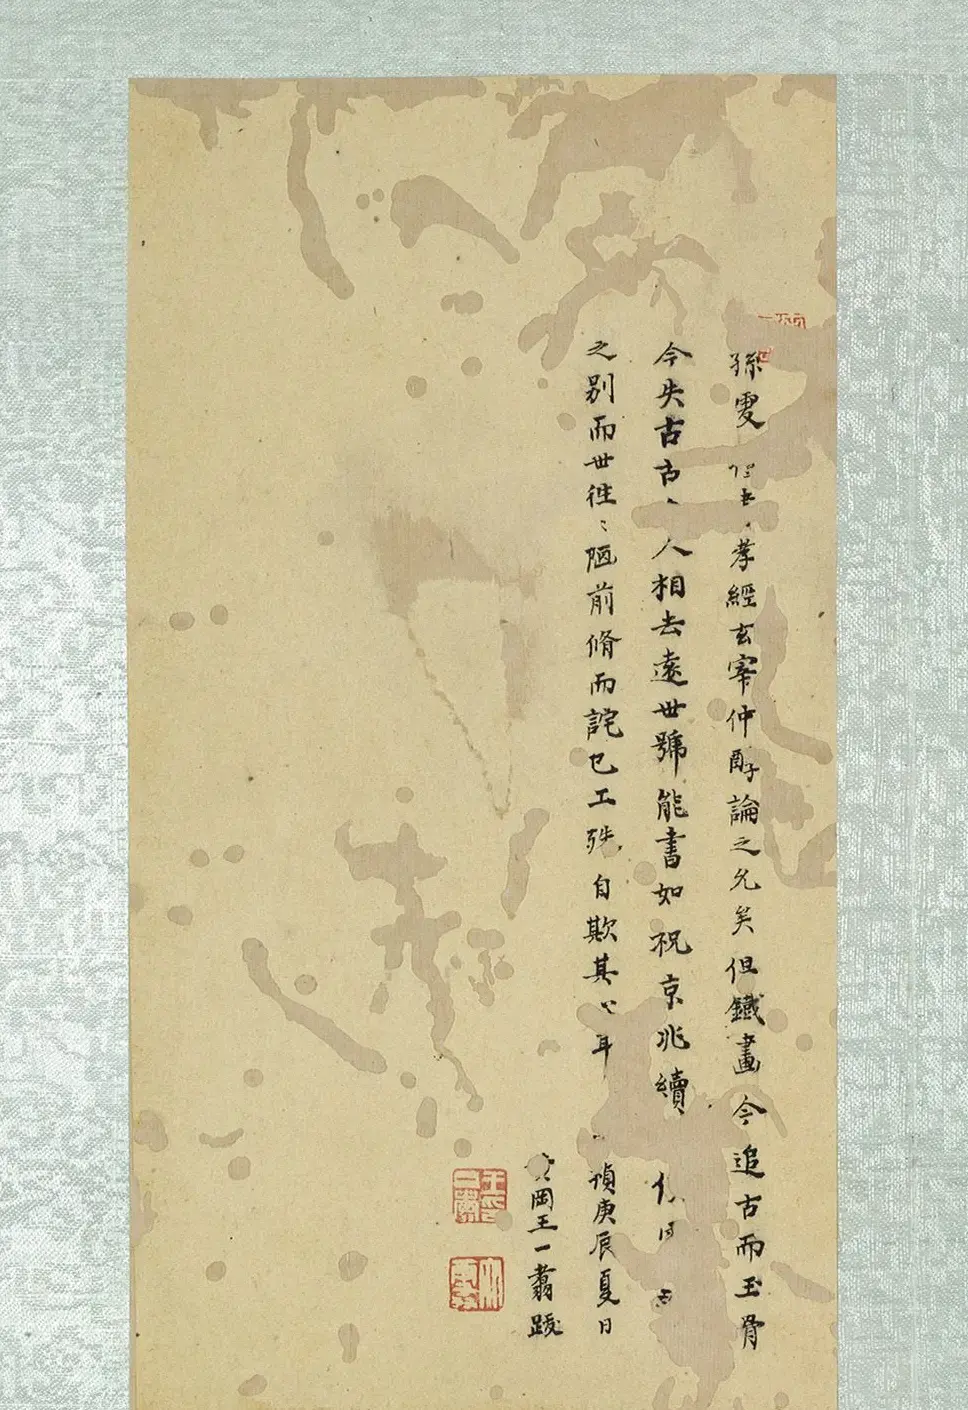 孫雯孝經玄宰仲醇論之允矣但鐵畫今追古而玉骨
今失古古人相去遠世號能書如祝京兆續
之别而世徃〻陋前脩而詫已工殊自欺其心耳
禎庚辰夏日
岡王一翥跋